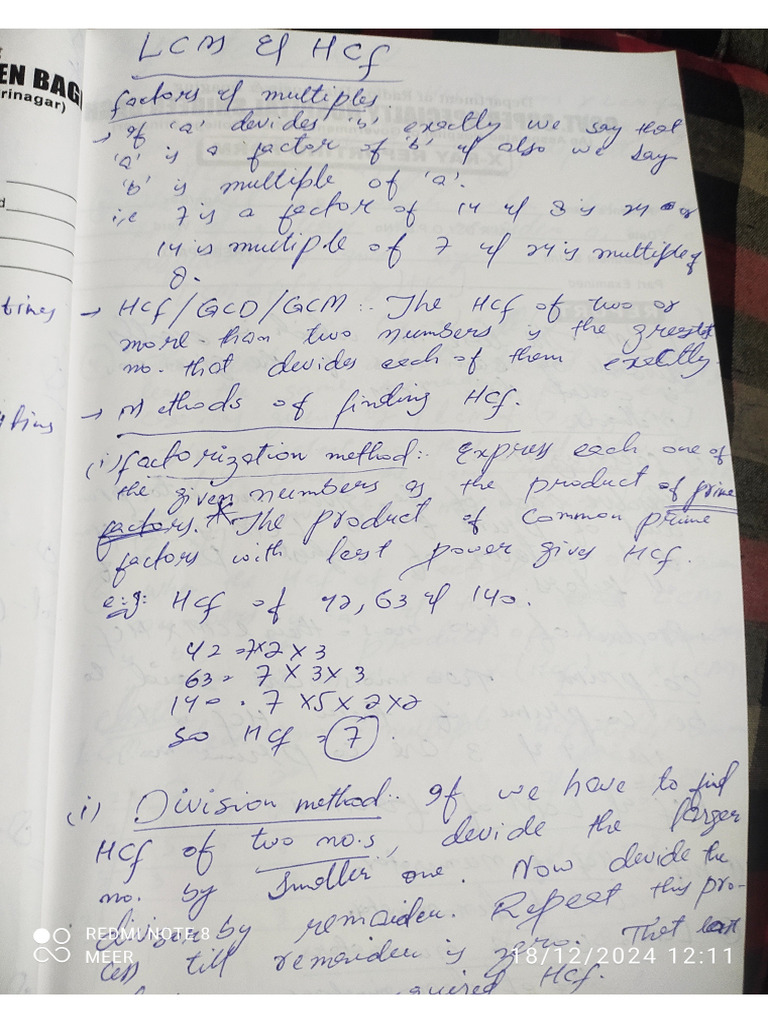 LCM & HCf
factors & multiples.
→ If 'a' devides 'b' exactly we say that
'a' is a factor of 'b' & also we say
'b' is multiple of 'a'.
i.e 7 is a factor of 14 & 8 is 24 or
14 is multiple of 7 & 24 is multiple of
8.
→ Hcf/GCD/GCM:. The Hcf of two or
more than two numbers is the greatest
no. that devides each of them exactly.
→ Methods of finding Hcf.
(i) factorization method:. Express each one of
the given numbers as the product of prime
factors. The product of common prime
factors with least power gives Hcf.
e:g: Hcf of 42, 63 & 140.
42 = 7×2×3
63 = 7×3×3
140 = 7×5×2×2
so Hcf = 7
(i) Division method:. If we have to find
Hcf of two no.s, devide the larger
no. by smaller one. Now devide the
divisor by remainder. Repeat this pro-
cess till remainder is zero. That last
required Hcf.
EN BAG
rinagar)
times
REDMI NOTE 8
MEER
18/12/2024 12:11